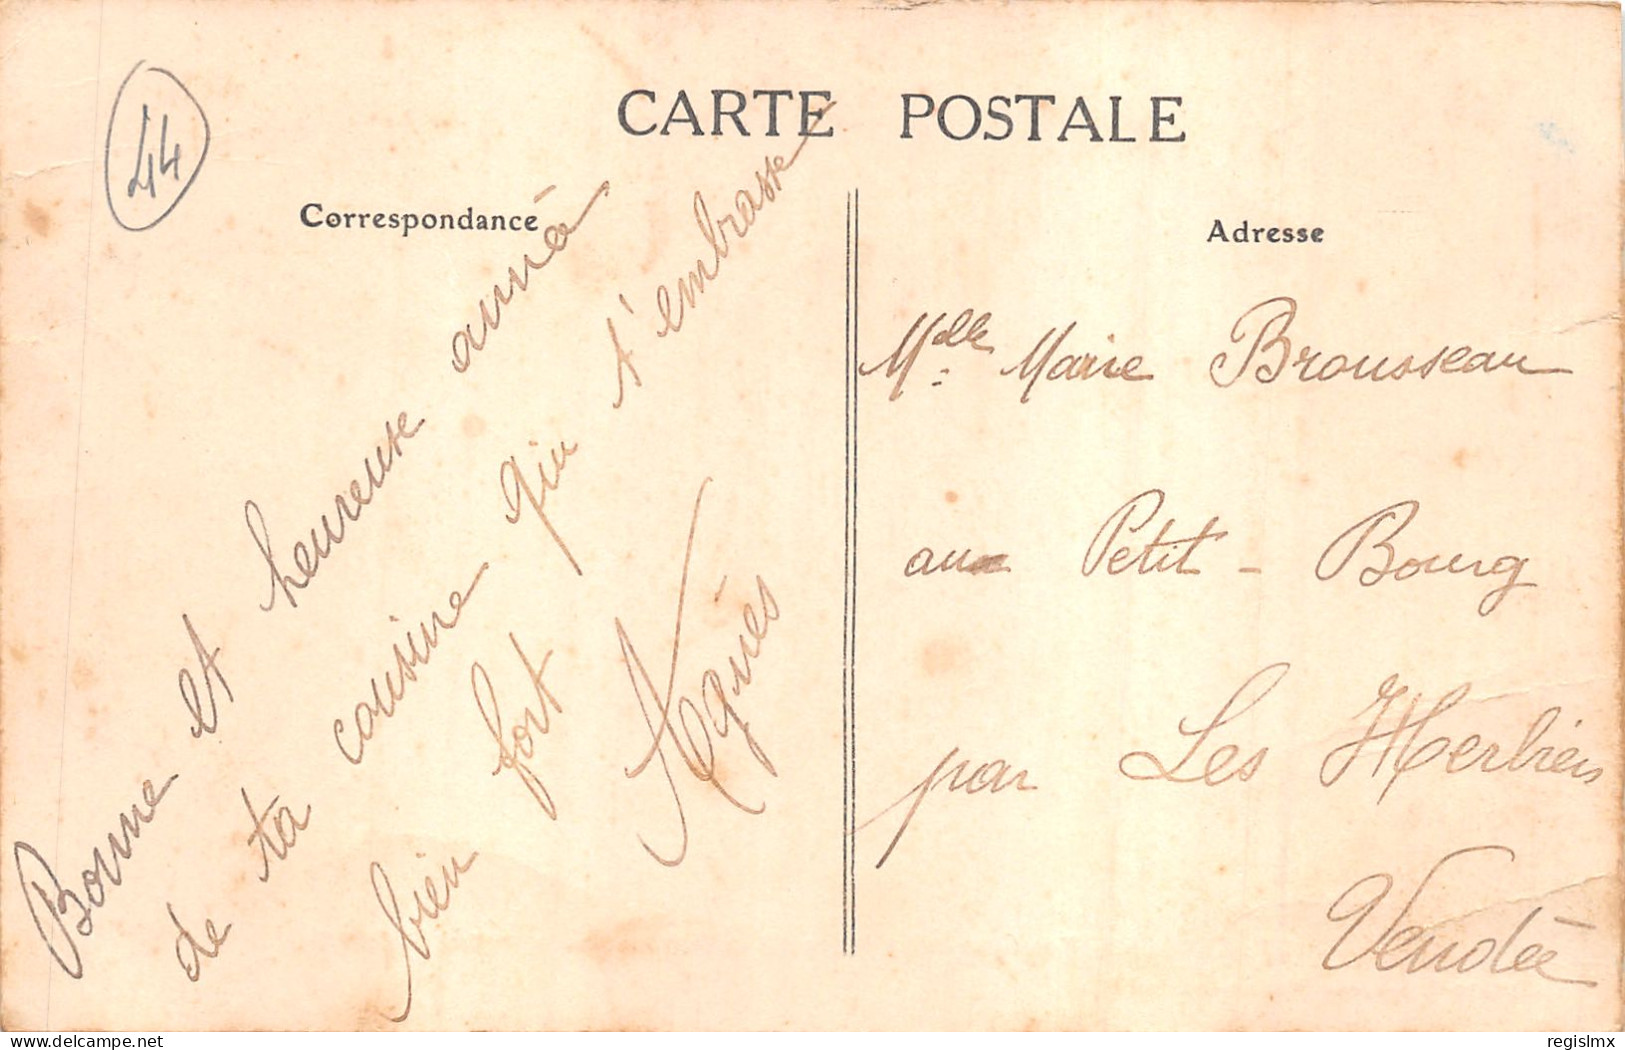 44
CARTE POSTALE
Correspondance
Bonne et heureuse année
de ta cousine qui t'embrasse
bien fort
Agnès
Adresse
Mlle Marie Brousseau
au Petit - Bourg
par Les Herbiers
Vendée
delcampe.net
regislmx